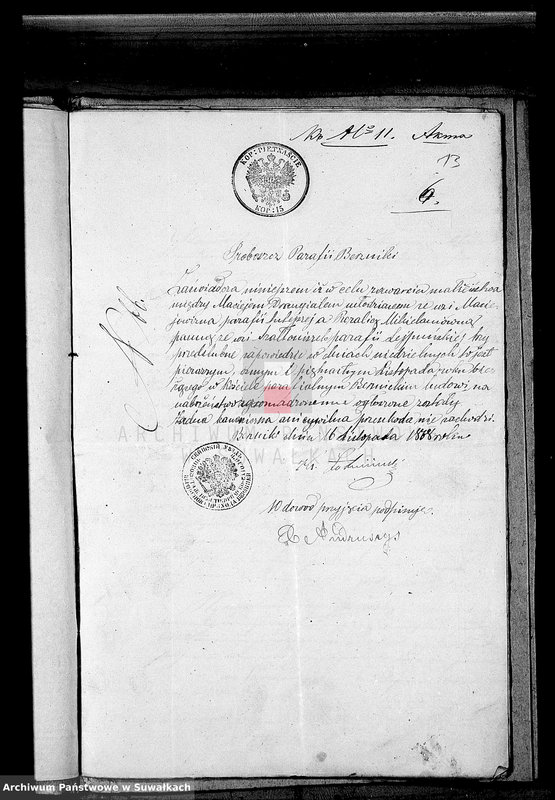 No 11. Akma
13
6.
KOP: PIETNAŚCIE
KOP: 15
Proboszcz Parafii Berzniki
Zawiadamia niniejszem iż w celu zawarcia małżeństwa
między Maciejem młodzianem ze wsi Macie
jowizna parafii tutejszej a Rozalią
panną ze wsi parafii Lejpuńskiej trzy
przedślubne zapowiedzie w dniach niedzielnych to jest
pierwszym, ósmym i piętnastym Listopada roku bież
ącego w kościele parafialnym Berznickim ludowi na
nabożeństwo zgromadzonemu ogłoszone zostały
żadna kanoniczna ani cywilna przeszkoda nie zachodzi.
Berzniki dnia 16 Listopada 1888 roku
W dowód przyjęcia podpisuję
ARCHIWUM PAŃSTWOWE
W SUWAŁKACH
Archiwum Państwowe w Suwałkach